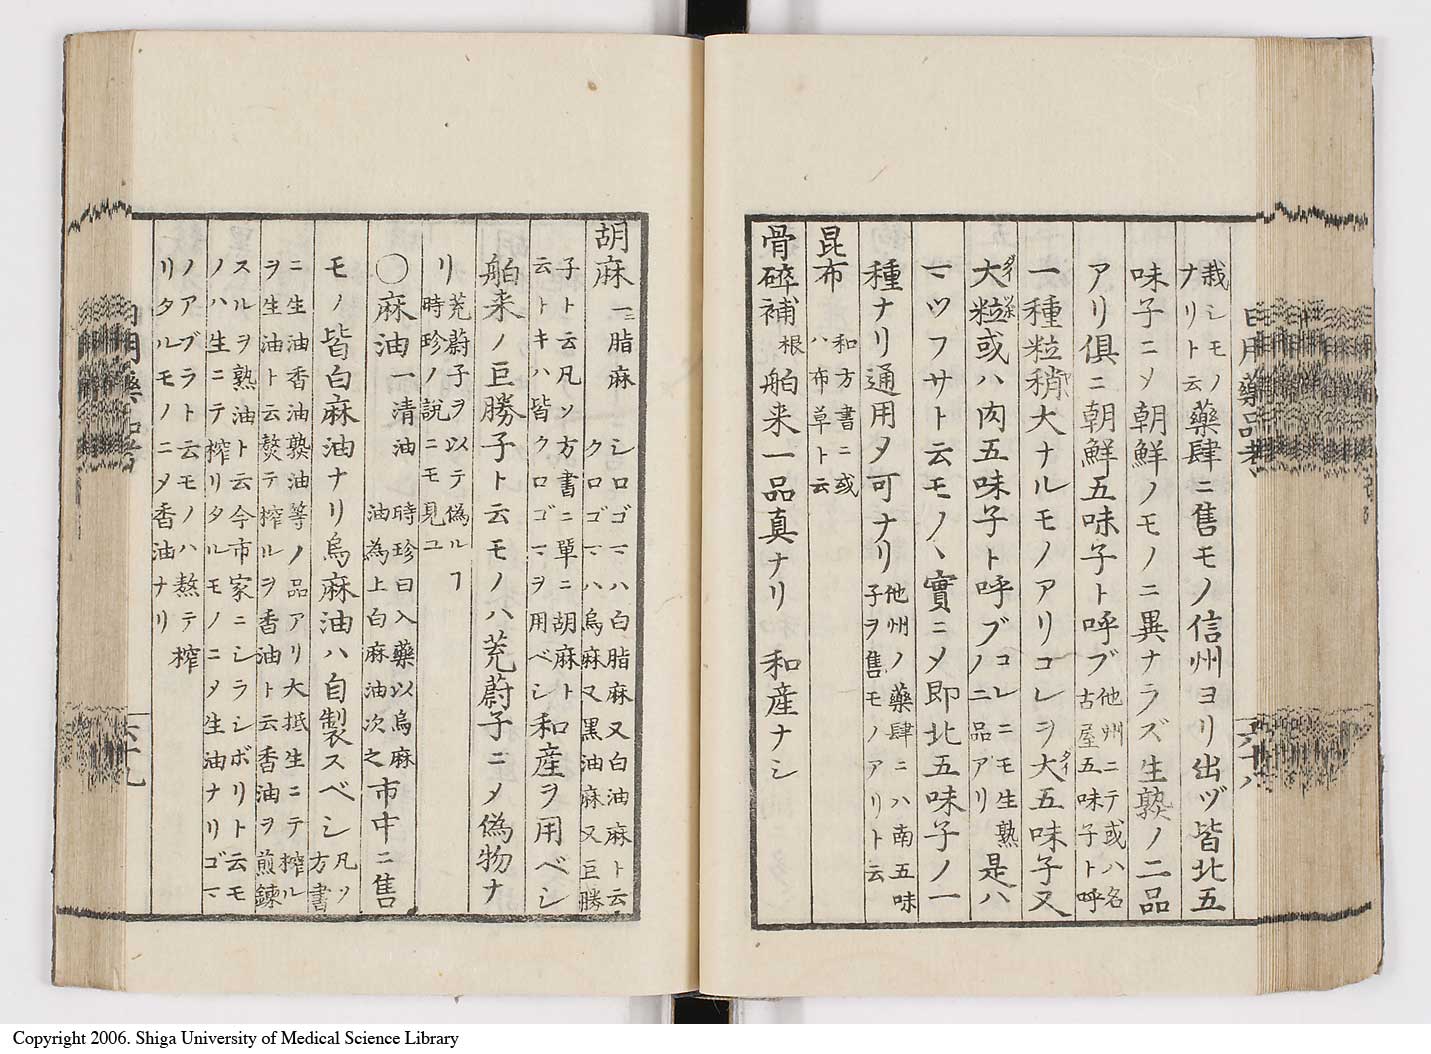 栽シモノ
ナリト云藥肆ニ售モノ信州ヨリ出ヅ皆北五
味子ニㄨ朝鮮ノモノニ異ナラズ生熟ノ二品
アリ俱ニ朝鮮五味子ト呼ブ他州ニテ或ハ名
古屋五味子ト呼
一種粒稍大ナルモノアリコレヲ大五味子又
大粒或ハ肉五味子ト呼ブコレニモ生熟
ノ二品アリ是ハ
マツフサト云モノヽ實ニㄨ即北五味子ノ一
種ナリ通用タ可ナリ他州ノ藥肆ニハ南五味
子ヲ售モノアリト云
昆布和方書ニ或
ハ布草ト云
骨碎補根舶来一品真ナリ 和産ナシ
日用藥品考
六十八
胡麻一ニ脂麻 シロゴマハ白脂麻又白油麻ト云
クロゴマハ烏麻又黒油麻又巨勝
子ト云凡ソ方書ニ單ニ胡麻ト
云トキハ皆クロゴマヲ用ベシ和産ヲ用ベシ
舶来ノ巨勝子ト云モノハ茺蔚子ニㄨ偽物ナ
リ茺蔚子ヲ以テ偽ルㄱ
時珍ノ説ニモ見ユ
〇麻油一清油 時珍曰入藥以烏麻
油為上白麻油次之市中ニ售
モノ皆白麻油ナリ烏麻油ハ自製スベシ凡ソ
方書
ニ生油香油熟油等ノ品アリ大抵生ニテ搾ル
ヲ生油ト云熬テ搾ルヲ香油ト云香油ヲ煎鍊
スルヲ熟油ト云今市家ニシラシボリト云モ
ノハ生ニテ搾リタルモノニㄨ生油ナリゴマ
ノアブラト云モノハ熬テ搾
リタルモノニㄨ香油ナリ
六十九
Copyright 2006. Shiga University of Medical Science Library